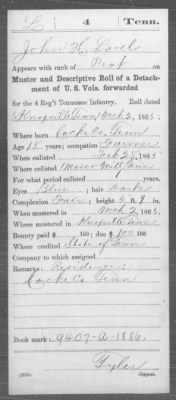 L | 4 | Tenn.
John H. Lovel
Appears with rank of Priv on
Muster and Descriptive Roll of a Detach-
ment of U. S. Vols. forwarded
for the 4 Reg't Tennessee Infantry. Roll dated
Knoxville Tenn Mch 2, 1865.
Where born Cocke Co. Tenn
Age 18 years; occupation Farmer
When enlisted Feb 28, 1865.
Where enlisted Tenn
For what period enlisted years.
Eyes Blue; hair Dark
Complexion Fair; height 5 ft. 9 in.
When mustered in Mch 2, 1865.
Where mustered in Knoxville Tenn
Bounty paid $ 100; due $ 100 100
Where credited State of Tenn
Company to which assigned
Remarks: Residence:
Cocke Co Tenn
Book mark: 9407-A-1886
Tyler
Copyist.